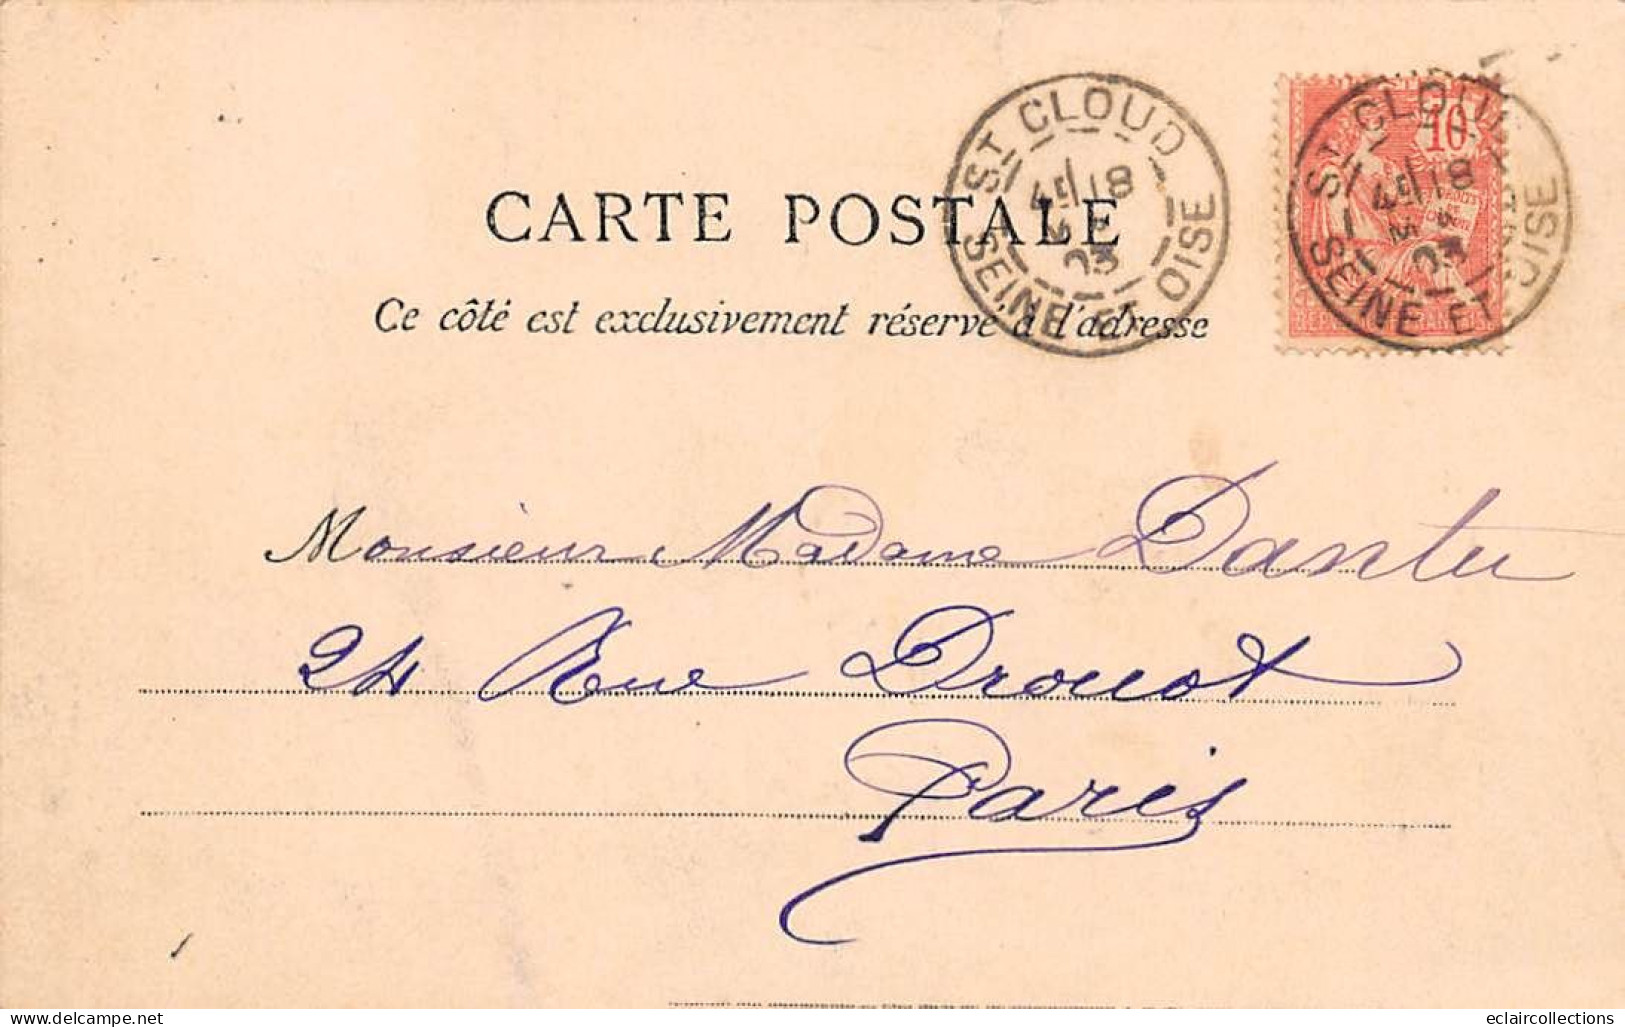 CARTE POSTALE
Ce côté est exclusivement réservé à l'adresse
ST CLOUD
18
03
SEINE ET OISE
10
ST CLOUD
18
03
SEINE ET OISE
Monsieur Madame Dantu
24 Rue Drouot
Paris
delcampe.net
eclaircollections